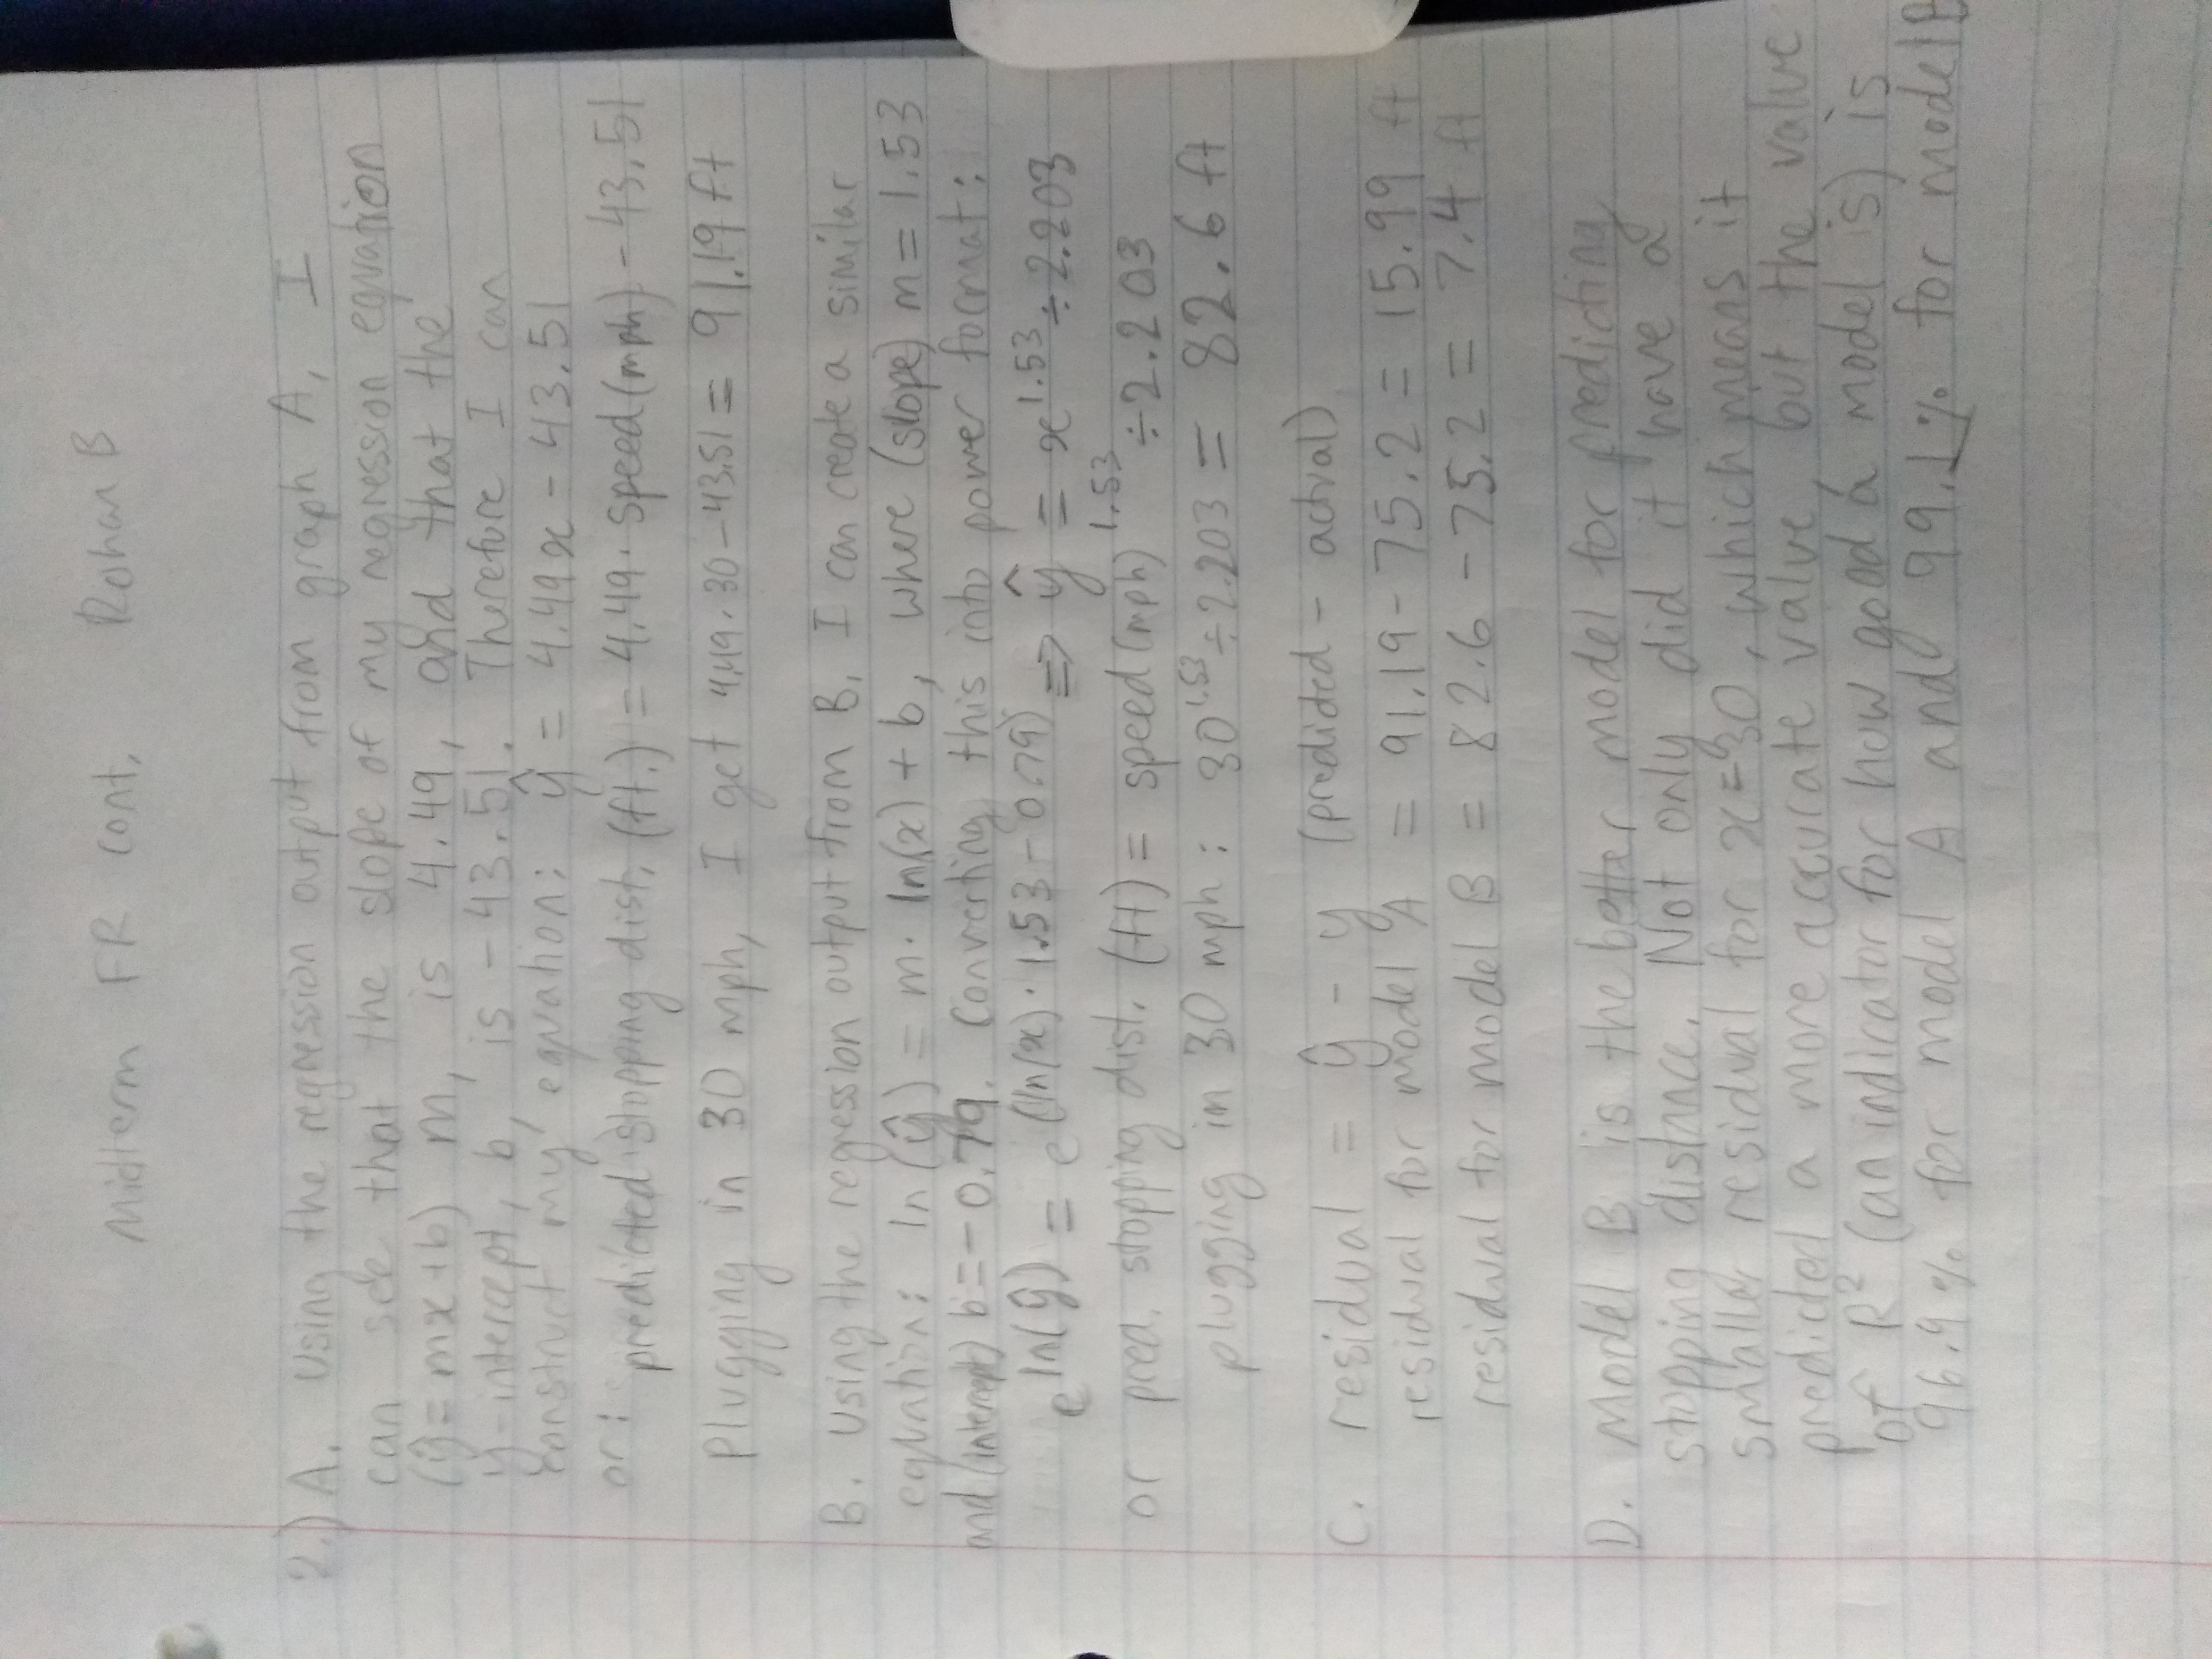 Midterm FR cont. Rohan B
2.) A. Using the regression output from graph A, I
can see that the slope of my regression equation
(ŷ = mx+b) m, is 4.49, and that the
y-intercept, b, is -43.51. Therefore I can
construct my equation: ŷ = 4.49x - 43.51
or: predicted stopping dist. (ft.) = 4.49 · speed(mph) - 43.51
Plugging in 30 mph, I get 4.49·30-43.51 = 91.19 ft
B. Using the regression output from B, I can create a similar
equation: ln(ŷ) = m· ln(x) + b, where (slope) m = 1.53
and (intercept) b = -0.79. Converting this into power format:
e^ln(ŷ) = e^(ln(x)·1.53-0.79) ⇒ ŷ = x^1.53 ÷ 2.203
or pred. stopping dist. (ft) = speed(mph)^1.53 ÷ 2.203
plugging in 30 mph: 30^1.53 ÷ 2.203 = 82.6 ft
C. residual = ŷ - y (predicted - actual)
residual for model A = 91.19 - 75.2 = 15.99 ft
residual for model B = 82.6 - 75.2 = 7.4 ft
D. Model B is the better model for predicting
stopping distance. Not only did it have a
smaller residual for x=30, which means it
predicted a more accurate value, but the value
of R² (an indicator for how good a model is) is
96.9% for model A and 99.1% for model B